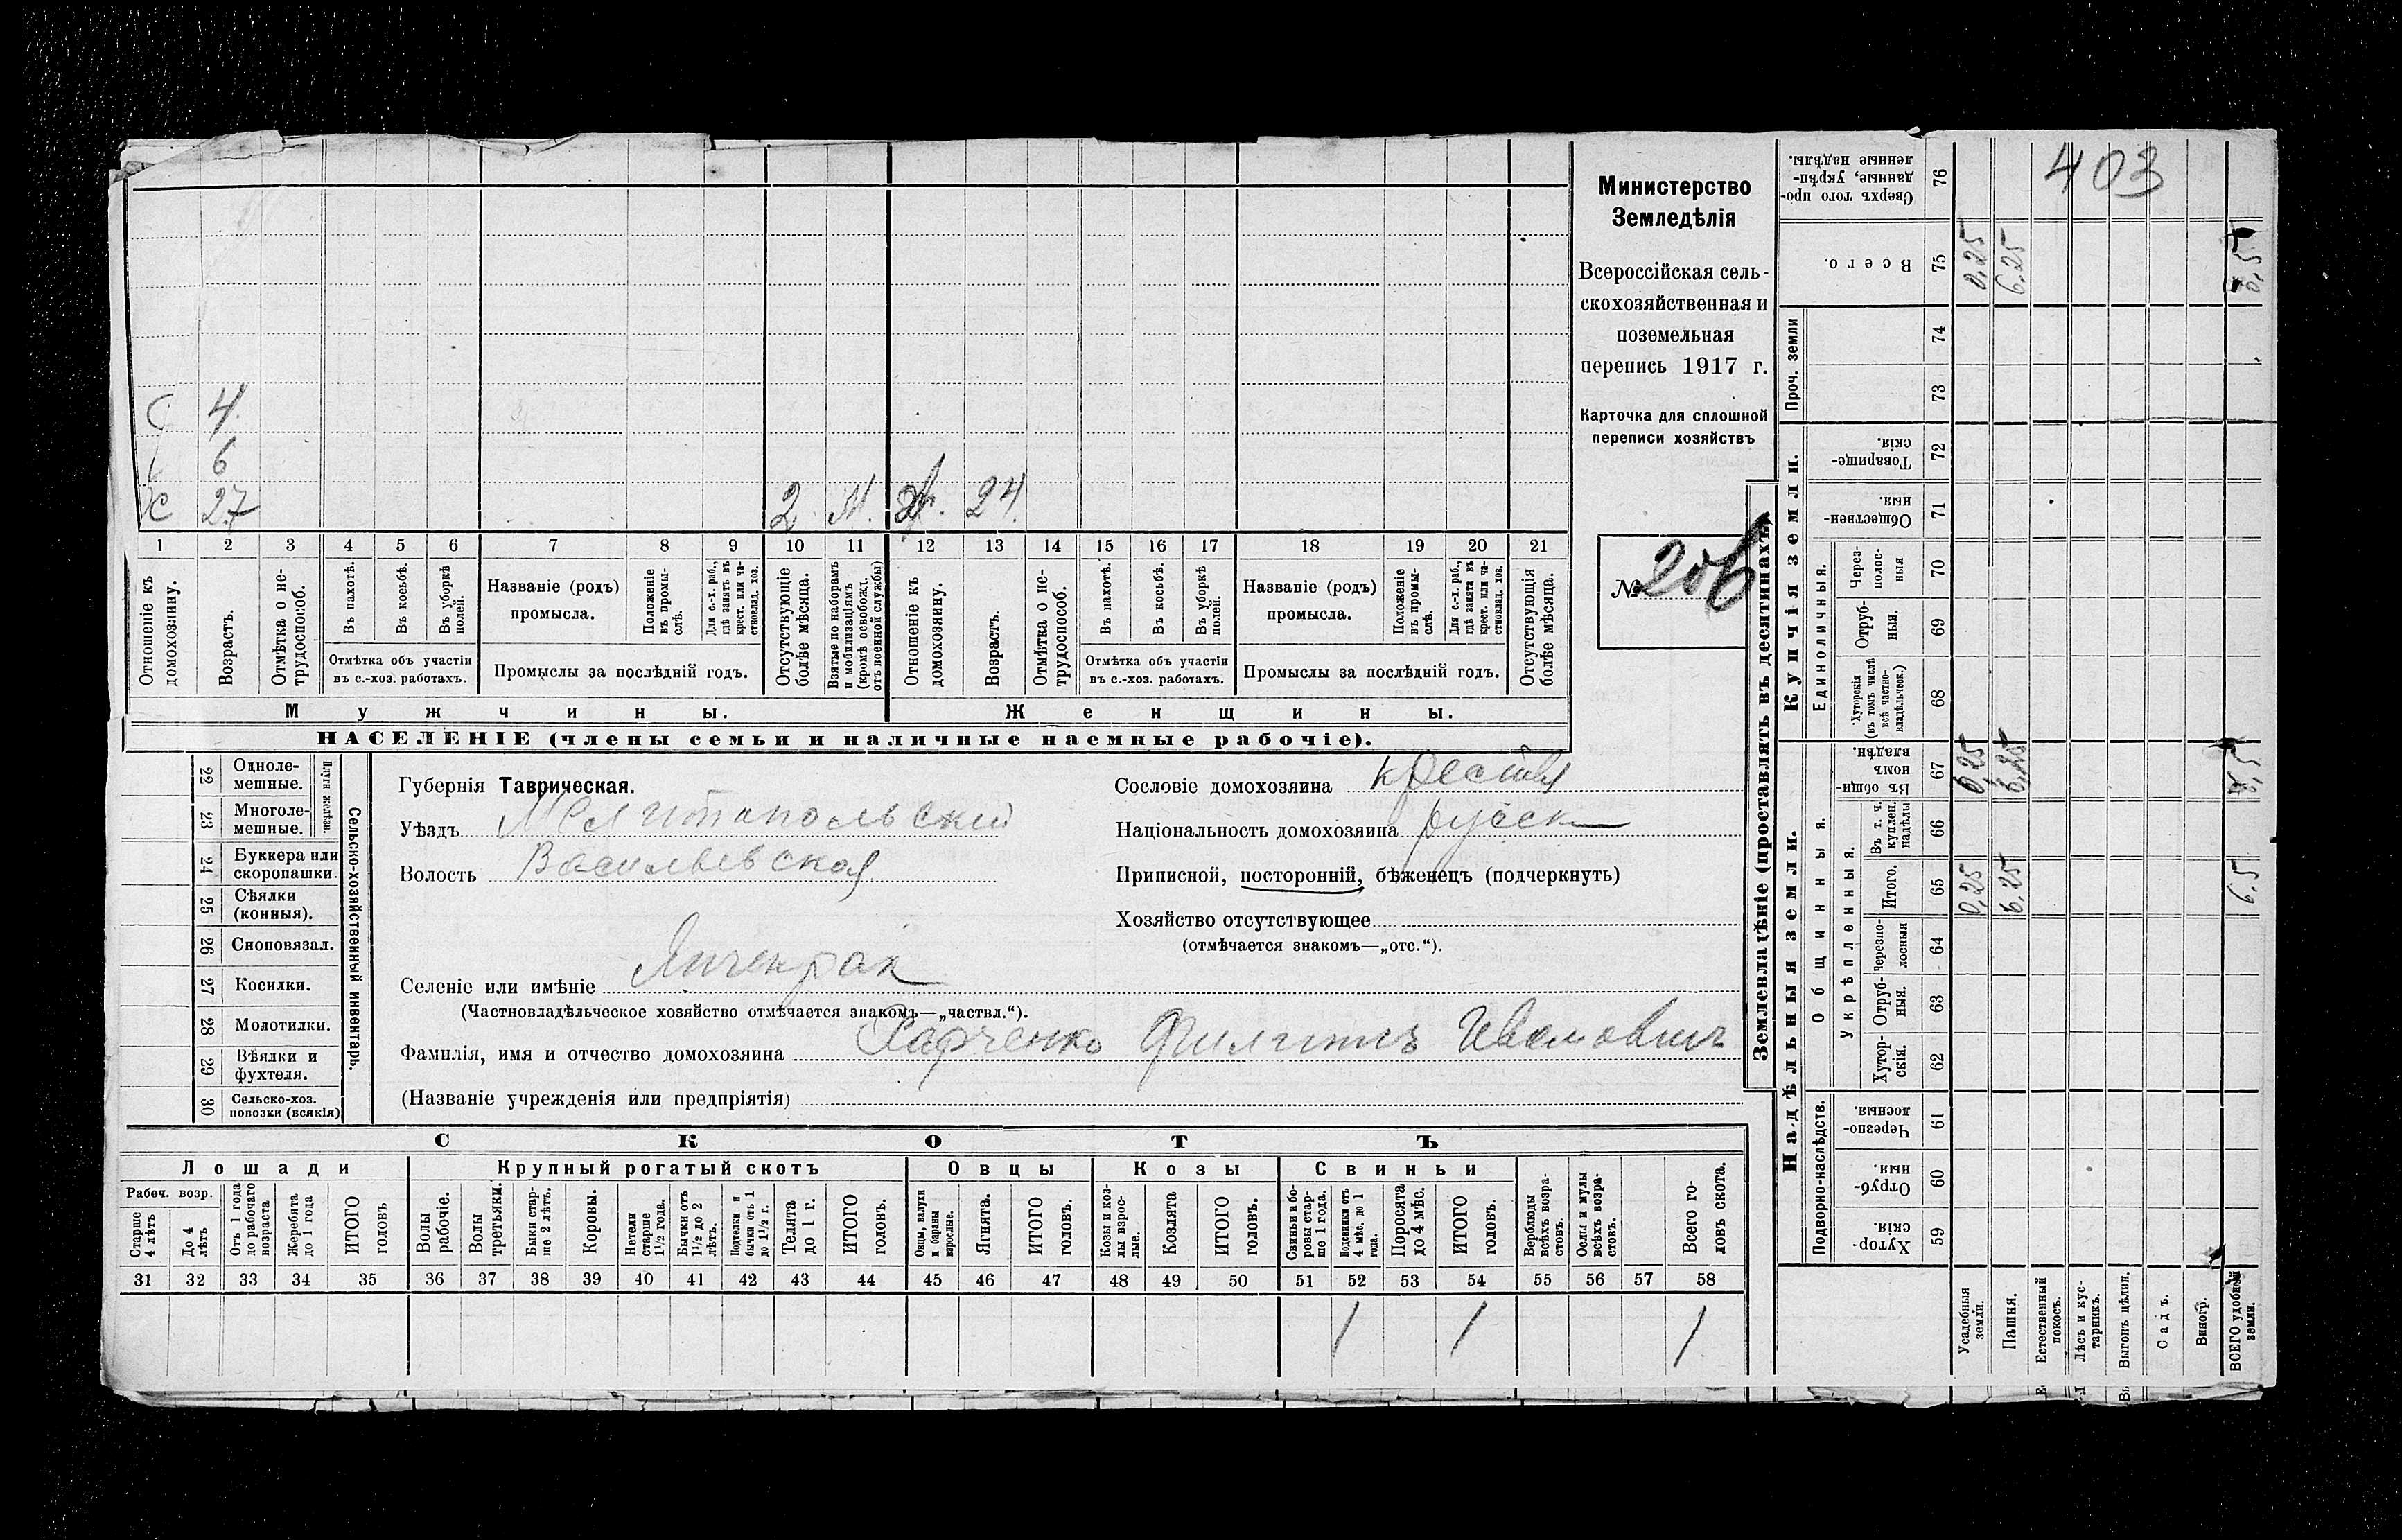 403
Министерство
Земледѣлія
Всероссійская сель-
скохозяйственная и
поземельная
перепись 1917 г.
Карточка для сплошной
переписи хозяйствъ
№ 206
С 4
6
Х 27 2 М. Ж. 24
1 2 3 4 5 6 7 8 9 10 11 12 13 14 15 16 17 18 19 20 21
Отношеніе къ домохозяину.
Возрастъ.
Отмѣтка о не-трудоспособ.
Въ пахотѣ.
Въ косьбѣ.
Въ уборкѣ полей.
Отмѣтка объ участіи
въ с.-хоз. работахъ.
Названіе (родъ)
промысла.
Положеніе въ промы-слѣ.
Для с.-х. раб., гдѣ занятъ въ крест. или ча-стновлад. хоз.
Промыслы за послѣдній годъ.
Отсутствующіе болѣе мѣсяца.
Взятые по наборамъ и мобилизаціямъ (кромѣ освобожд. отъ военной службы)
Отношеніе къ домохозяину.
Возрастъ.
Отмѣтка о не-трудоспособ.
Въ пахотѣ.
Въ косьбѣ.
Въ уборкѣ полей.
Отмѣтка объ участіи
въ с.-хоз. работахъ.
Названіе (родъ)
промысла.
Положеніе въ промы-слѣ.
Для с.-х. раб., гдѣ занята въ крест. или ча-стновлад. хоз.
Промыслы за послѣдній годъ.
Отсутствующія болѣе мѣсяца.
Мужчины. Женщины.
НАСЕЛЕНІЕ (члены семьи и наличные наемные рабочіе).
Сельско-хозяйственный инвентарь.
Плуги желѣзн.
22 Одноле-мешные.
23 Многоле-мешные.
24 Буккера или скоропашки.
25 Сѣялки (конныя).
26 Сноповязал.
27 Косилки.
28 Молотилки.
29 Вѣялки и фухтеля.
30 Сельско-хоз. повозки (всякія)
Губернія Таврическая.
Уѣздъ Мелитопольскій
Волость Васильевская
Селеніе или имѣніе Янчекрак
(Частновладѣльческое хозяйство отмѣчается знакомъ—„частвл.“).
Фамилія, имя и отчество домохозяина Радченко Филиппъ Ивановичъ
(Названіе учрежденія или предпріятія)
Сословіе домохозяина крестья
Національность домохозяина русск
Приписной, посторонній, бѣженецъ (подчеркнуть)
Хозяйство отсутствующее
(отмѣчается знакомъ—„отс.“).
СКОТЪ
Лошади Крупный рогатый скотъ Овцы Козы Свиньи
Рабоч. возр.
Старше 4 лѣтъ
До 4 лѣтъ
Отъ 1 года до рабочаго возраста
Жеребята до 1 года
ИТОГО головъ
Волы рабочіе.
Волы третьяки.
Быки стар-ше 2 лѣтъ.
Коровы.
Нетели старше 1½ года.
Бычки отъ 1½ до 2 лѣтъ.
Подтелки и бычки отъ 1 до 1½ г.
Телята до 1 г.
ИТОГО головъ.
Овцы, валухи и бараны взрослые.
Ягнята.
ИТОГО головъ.
Козы и коз-лы взрос-лые.
Козлята
ИТОГО головъ.
Свиньи и бо-ровы стар-ше 1 года.
Подсвинки отъ 4 мѣс. до 1 года.
Поросята до 4 мѣс.
ИТОГО головъ.
Верблюды всѣхъ возра-стовъ.
Ослы и мулы всѣхъ возра-стовъ.
Всего го-ловъ скота.
31 32 33 34 35 36 37 38 39 40 41 42 43 44 45 46 47 48 49 50 51 52 53 54 55 56 57 58
1 1 1
Землевладѣніе (проставлять въ десятинахъ).
Надѣльныя земли.
Купчія земли.
Проч. земли
Подворно-наслѣдств.
Общинныя.
Укрѣпленныя.
Единоличныя.
Сверхъ того про-данные, укрѣп-ленные надѣлы. 76
Всего. 75 0,25 6,25 6,5
74
73
Товарище-скія. 72
Обществен-ныя. 71
Через-полос-ныя 70
Отруб-ныя. 69
Хуторскія (въ томъ числѣ всѣ частно-владѣльческ.) 68
Въ общи-номъ владѣн. 67 0,25 6,25 6,5
Въ т. ч. куплен. надѣлы 66
Итого. 65 0,25 6,25 6,5
Черезпо-лосныя 64
Отруб-ныя. 63
Хутор-скія. 62
Черезпо-лосныя. 61
Отруб-ныя. 60
Хутор-скія. 59
Усадебныя земли.
Пашня.
Естественный покосъ.
Лѣсъ и кус-тарникъ.
Выгонъ цѣлин.
Садъ.
Виногр.
ВСЕГО удобной земли.